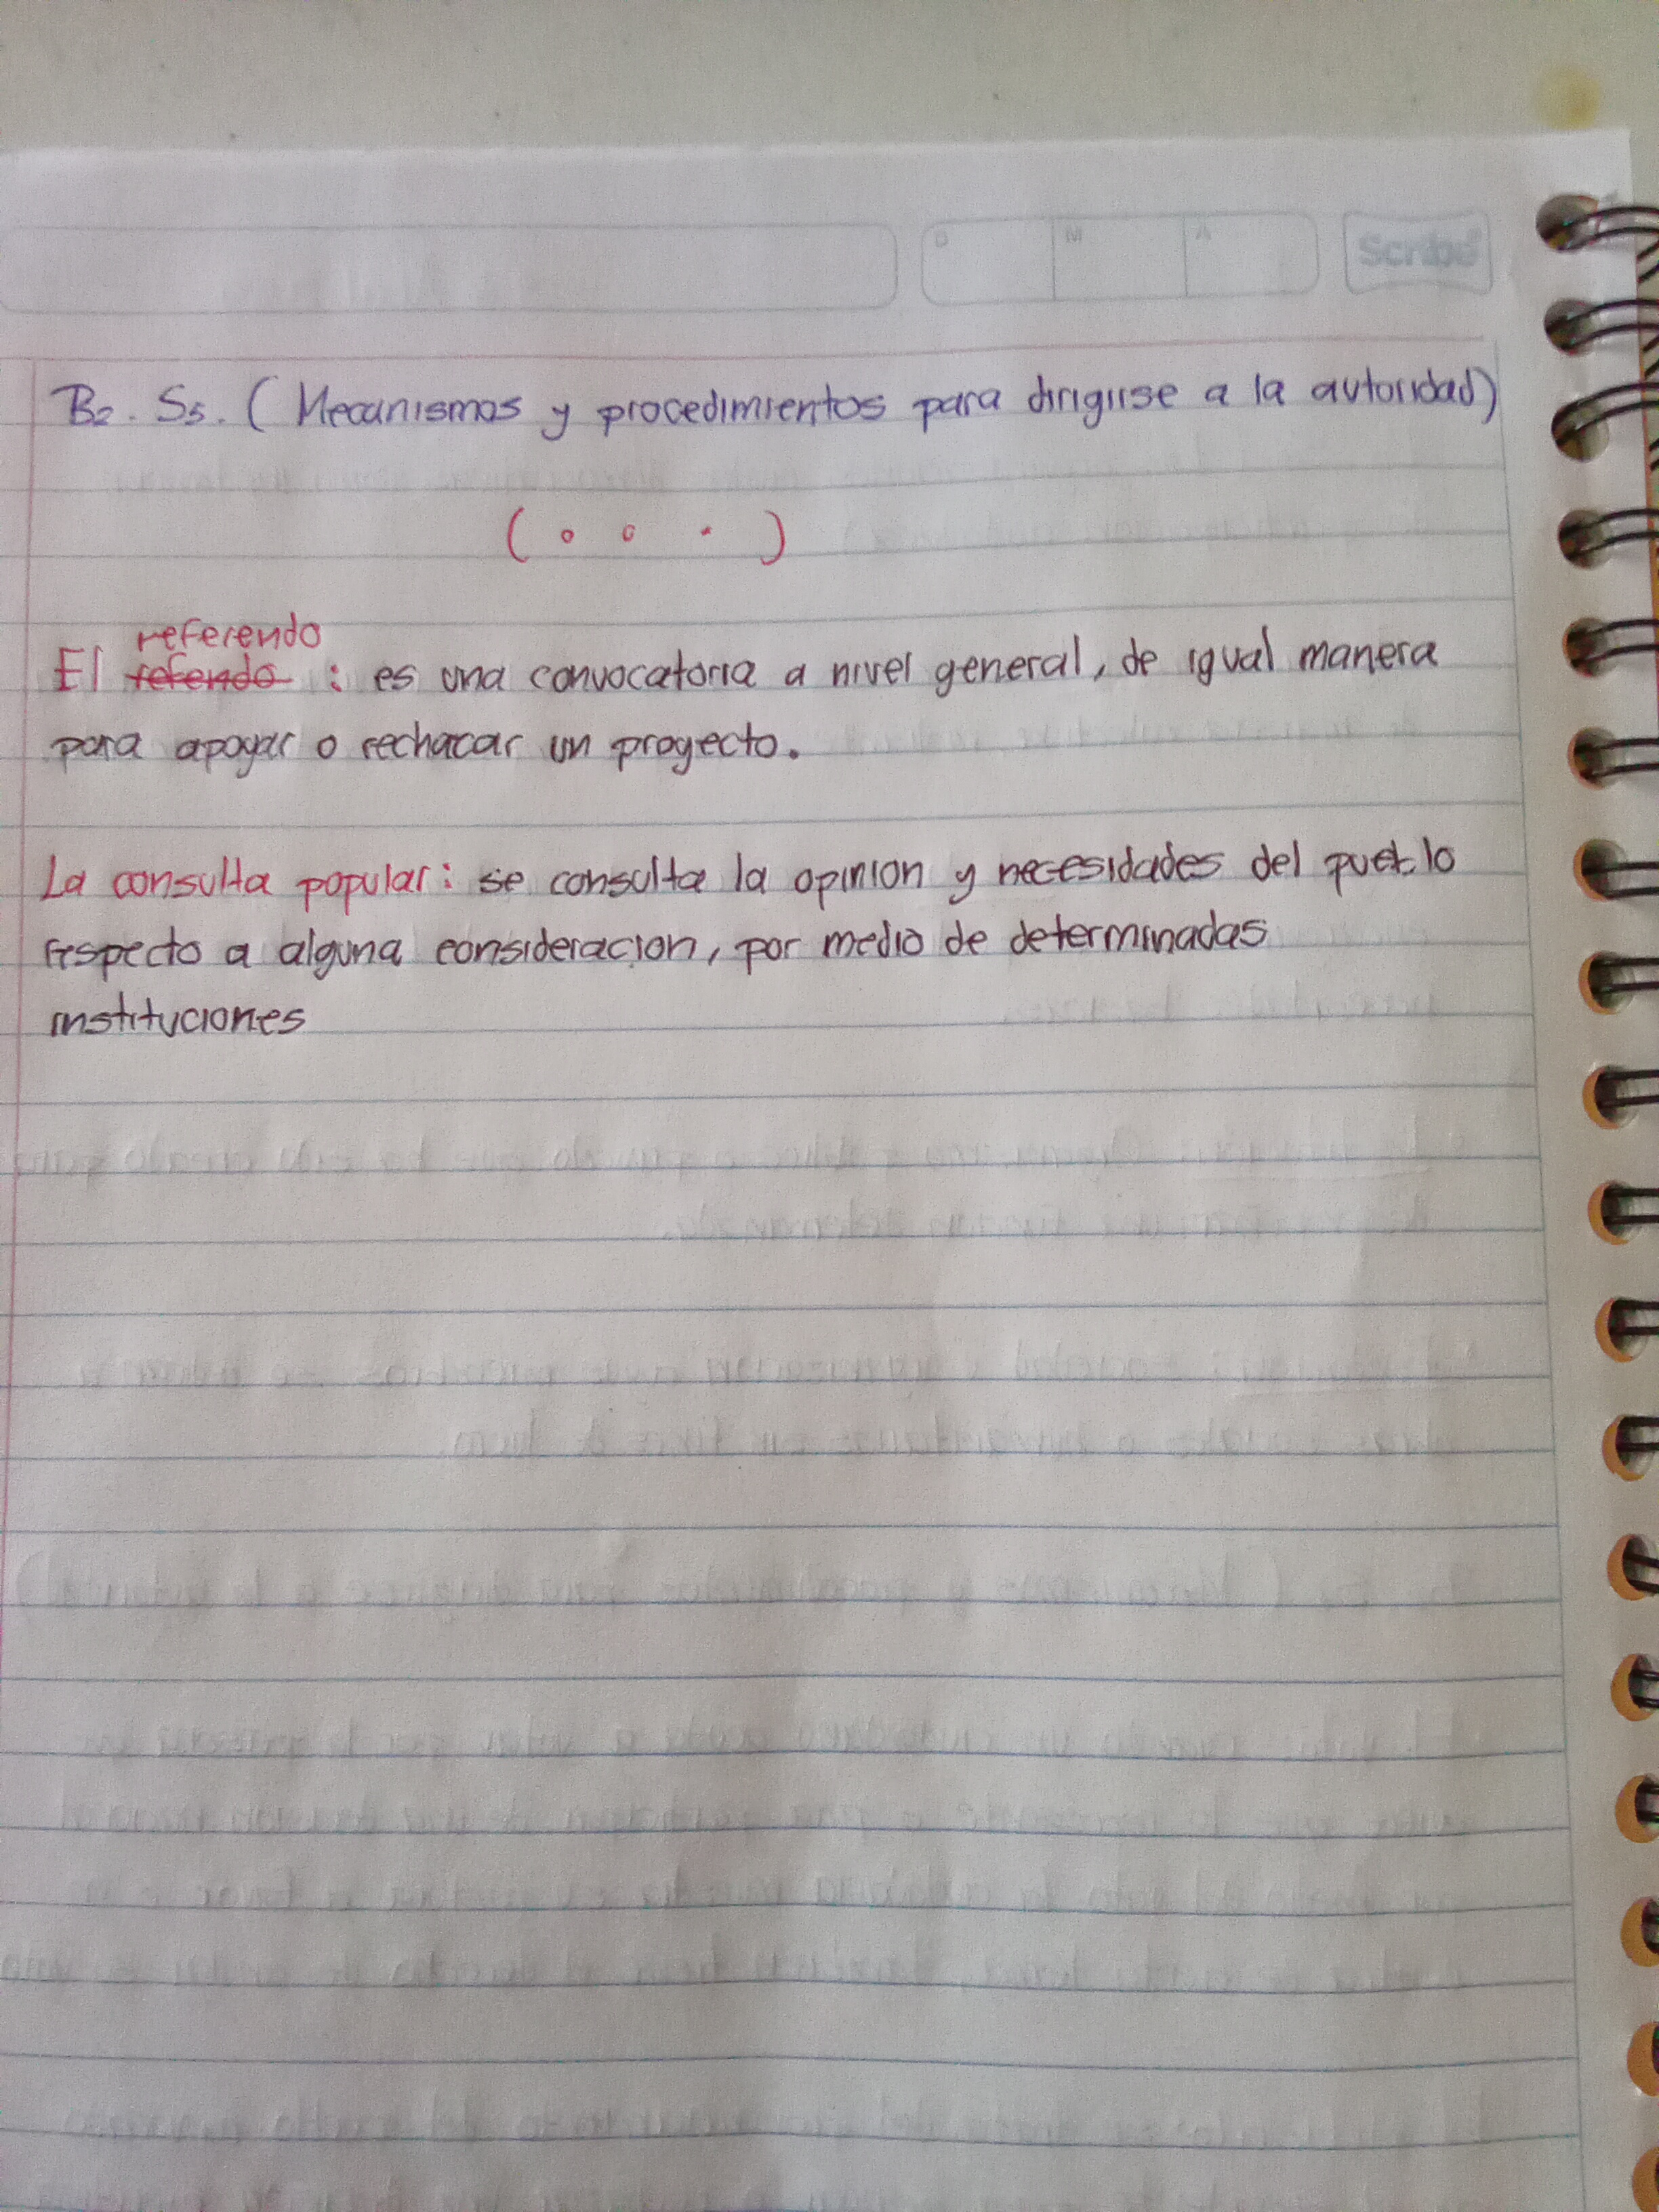 D M A Scribe
B2. S5. ( Mecanismos y procedimientos para dirigirse a la autoridad)
( . . . )
referendo
El refendo : es una convocatoria a nivel general, de igual manera
para apoyar o rechacar un proyecto.
La consulta popular: se consulta la opinion y necesidades del pueblo
respecto a alguna consideracion, por medio de determinadas
instituciones